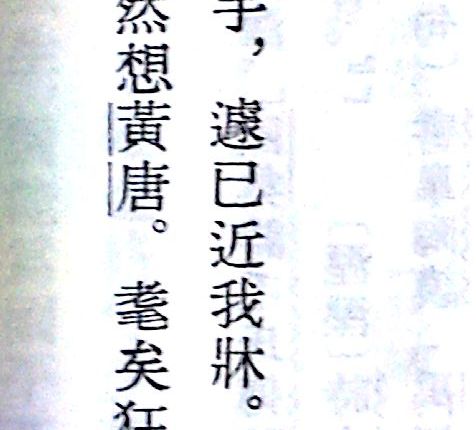 手，遽已近我牀。
然想黃唐。耄矣狂